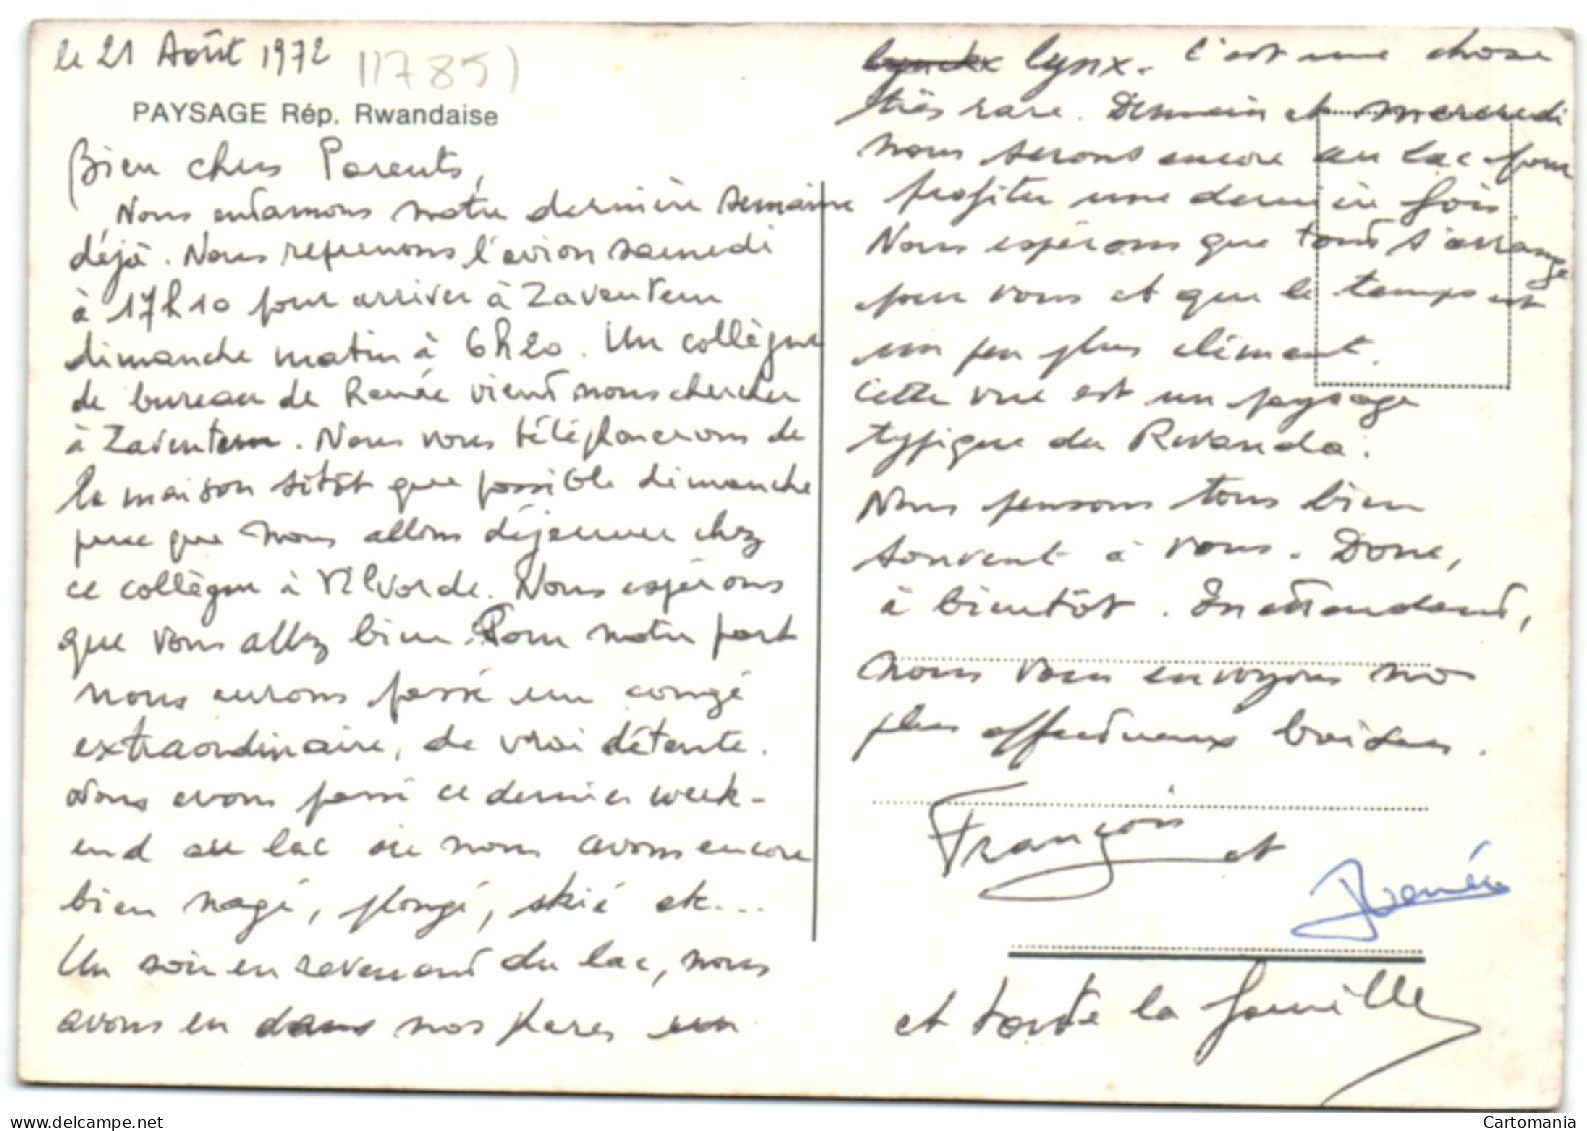 le 21 Août 1972 11785)
PAYSAGE Rép. Rwandaise
Bien chers Parents,
Nous entamons notre dernière semaine
déjà. Nous reprenons l'avion samedi
à 17h10 pour arriver à Zaventem
dimanche matin à 6h20. Un collègue
de bureau de Renée vient nous chercher
à Zaventem. Nous vous téléphonerons de
la maison sitôt que possible dimanche
parce que nous allons déjeuner chez
ce collègue à Vilvorde. Nous espérons
que vous allez bien. Pour notre part
nous aurons passé un congé
extraordinaire, de vrai détente.
Nous avons passé ce dernier week-
end au lac où nous avons encore
bien nagé, plongé, skié etc...
Un soir en revenant du lac, nous
avons eu dans nos phares un
lynckx lynx. C'est une chose
très rare. Demain et mercredi
nous serons encore au lac pour
profiter une dernière fois.
Nous espérons que tout s'arrange
pour vous et que le temps est
un peu plus clément.
Cette vue est un paysage
typique du Rwanda.
Nous pensons tous bien
souvent à vous. Donc,
à bientôt. En attendant,
nous vous envoyons nos
plus affectueux baisers.
François et
Renée
et toute la famille
Cartomania